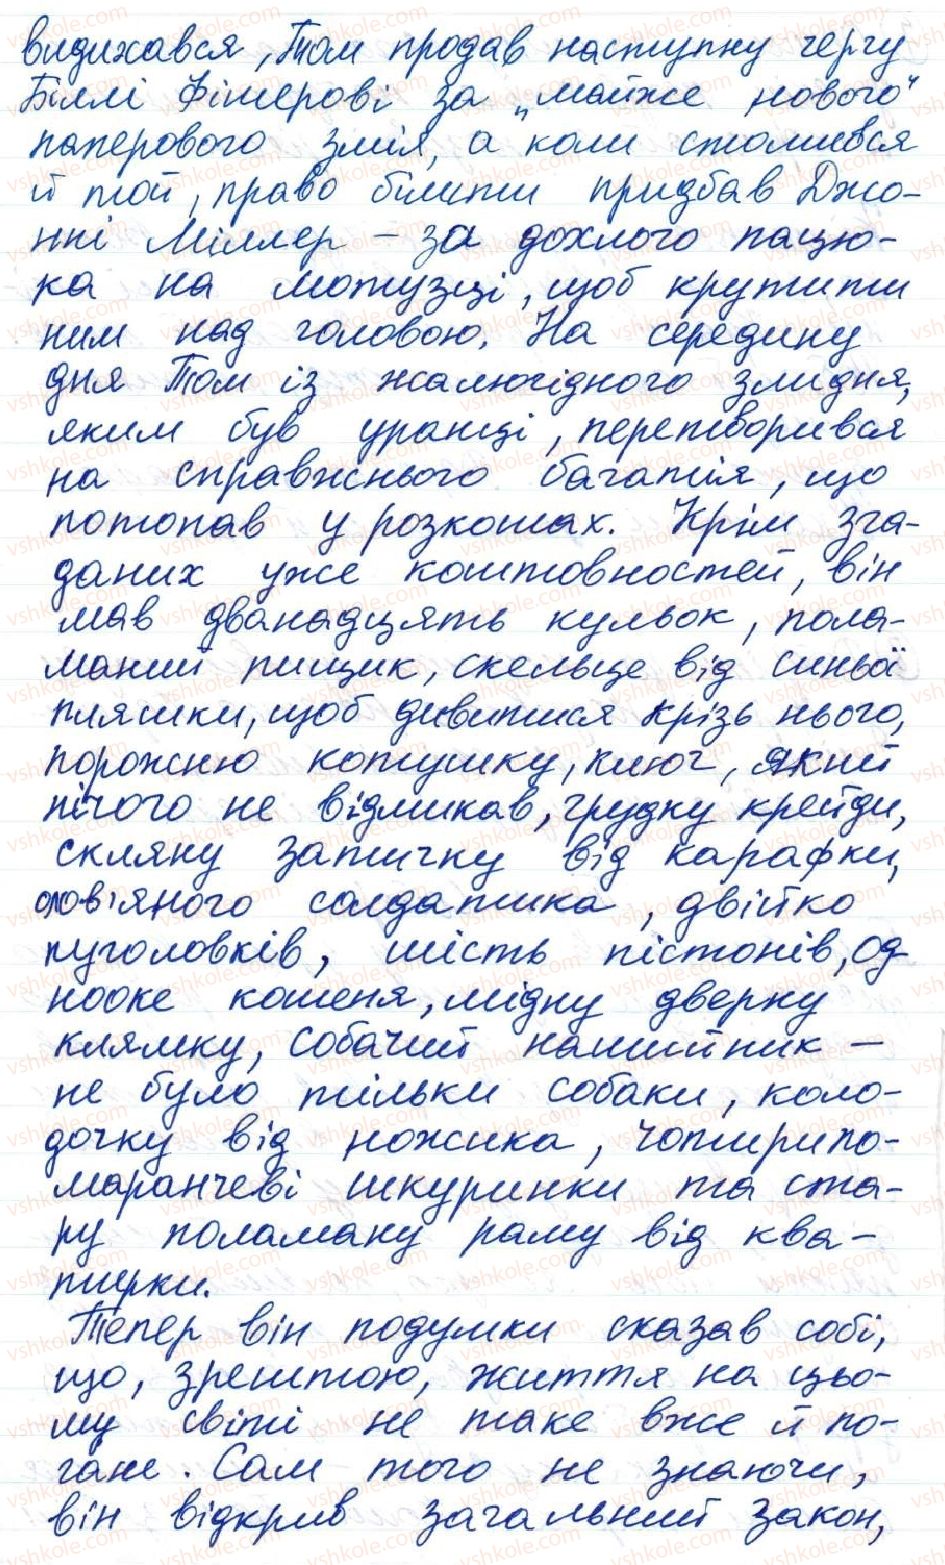 видихався, Том продав наступну чергу
Біллі Фішерові за „майже нового"
паперового змія, а коли стомився
й той, право білити придбав Джо-
нні Міллер – за дохлого пацю-
ка на мотузці, щоб крутити
ним над головою. На середину
дня Том із жалюгідного злидня,
яким був уранці, перетворився
на справжнього багатія, що
потопав у розкошах. Крім зга-
даних уже коштовностей, він
мав дванадцять кульок, пола-
маний пищик, скельце від синьої
пляшки, щоб дивитися крізь нього,
порожню котушку, ключ, який
нічого не відмикав, грудку крейди,
скляну затичку від карафки,
олов'яного солдатика, двійко
пуголовків, шість пістонів, од
нооке кошеня, мідну дверну
клямку, собачий нашийник –
не було тільки собаки, коло-
дочку від ножика, чотири по-
маранчеві шкуринки та ста-
ру поламану раму від ква-
тирки.
Тепер він подумки сказав собі,
що, зрештою, життя на цьо-
му світі не таке вже й по-
гане. Сам того не знаючи,
він відкрив загальний закон,